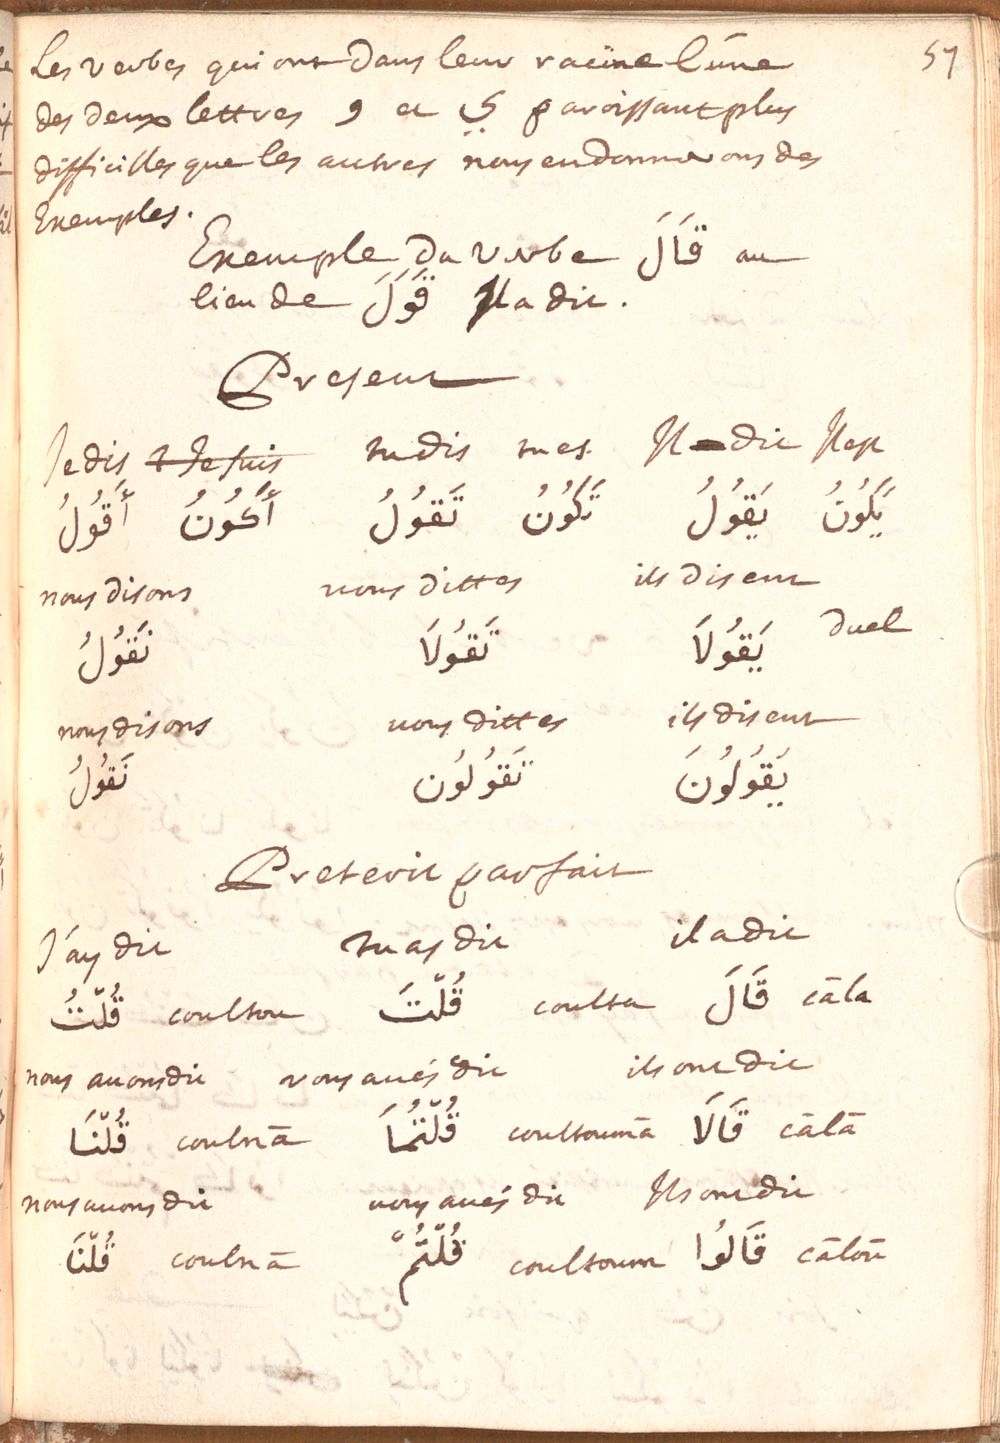 57
Les verbes qui ont dans leur racine l'une
des deux lettres و et ي paroissant plus
difficilles que les autres nous en donnerons des
Exemples.
Exemple du verbe قَالَ au
lieu de قَوَلَ Il a dit.
Present
Je dis & Je suis tu dis tu es. Il dit Il est
أَقُولُ أَكُونُ تَقُولُ تَكُونُ يَقُولُ يَكُونُ
nous disons vous dittes ils disent
duel
نَقُولُ تَقُولَا يَقُولَا
nous disons vous dittes ils disent
نَقُولُ تَقُولُون يَقُولُونَ
Preterit parfait
J'ay dit tu as dit il a dit
قُلْتُ coultou قُلْتَ coulta قَالَ cāla
nous avons dit vous avés dit ils ont dit
قُلْنَا coulnā قُلْتُمَا coultoumā قَالَا cālā
nous avons dit vous avés dit Ils ont dit
قُلْنَا coulnā قُلْتُمْ coultoum قَالُوا cāloū